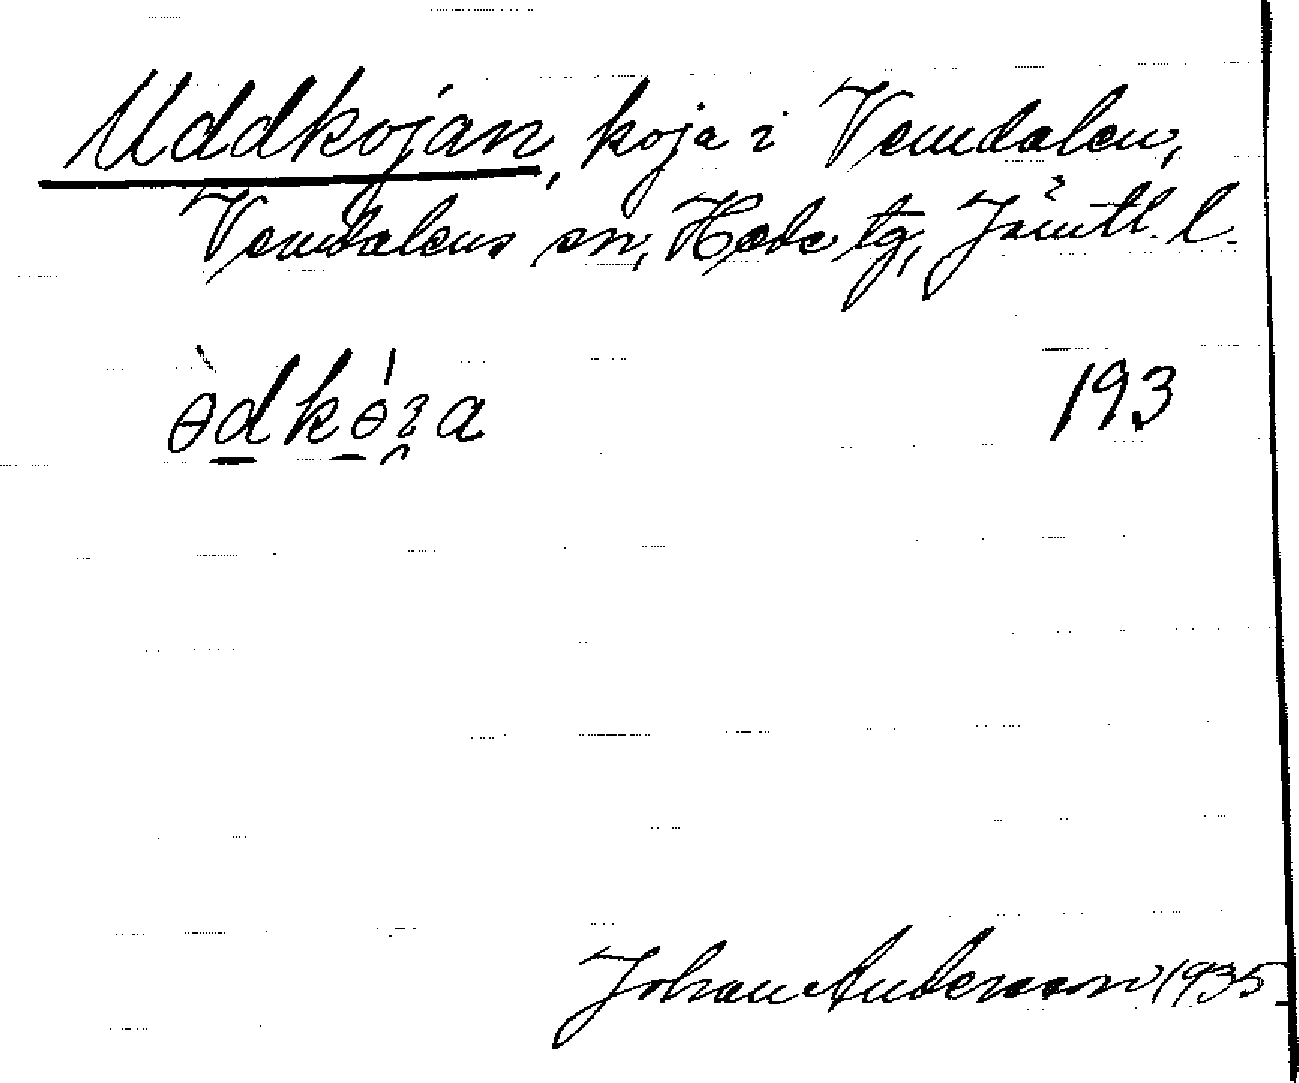 Uddkojan, koja i Vemdalen,
Vemdalens sn, Hede tg, Jämtl. l.
193
Johan Anderson 1935